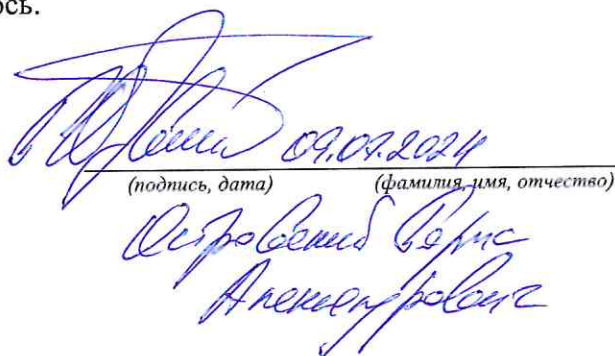 ось.
09.07.2024
(подпись, дата) (фамилия, имя, отчество)
Островский Борис
Александрович